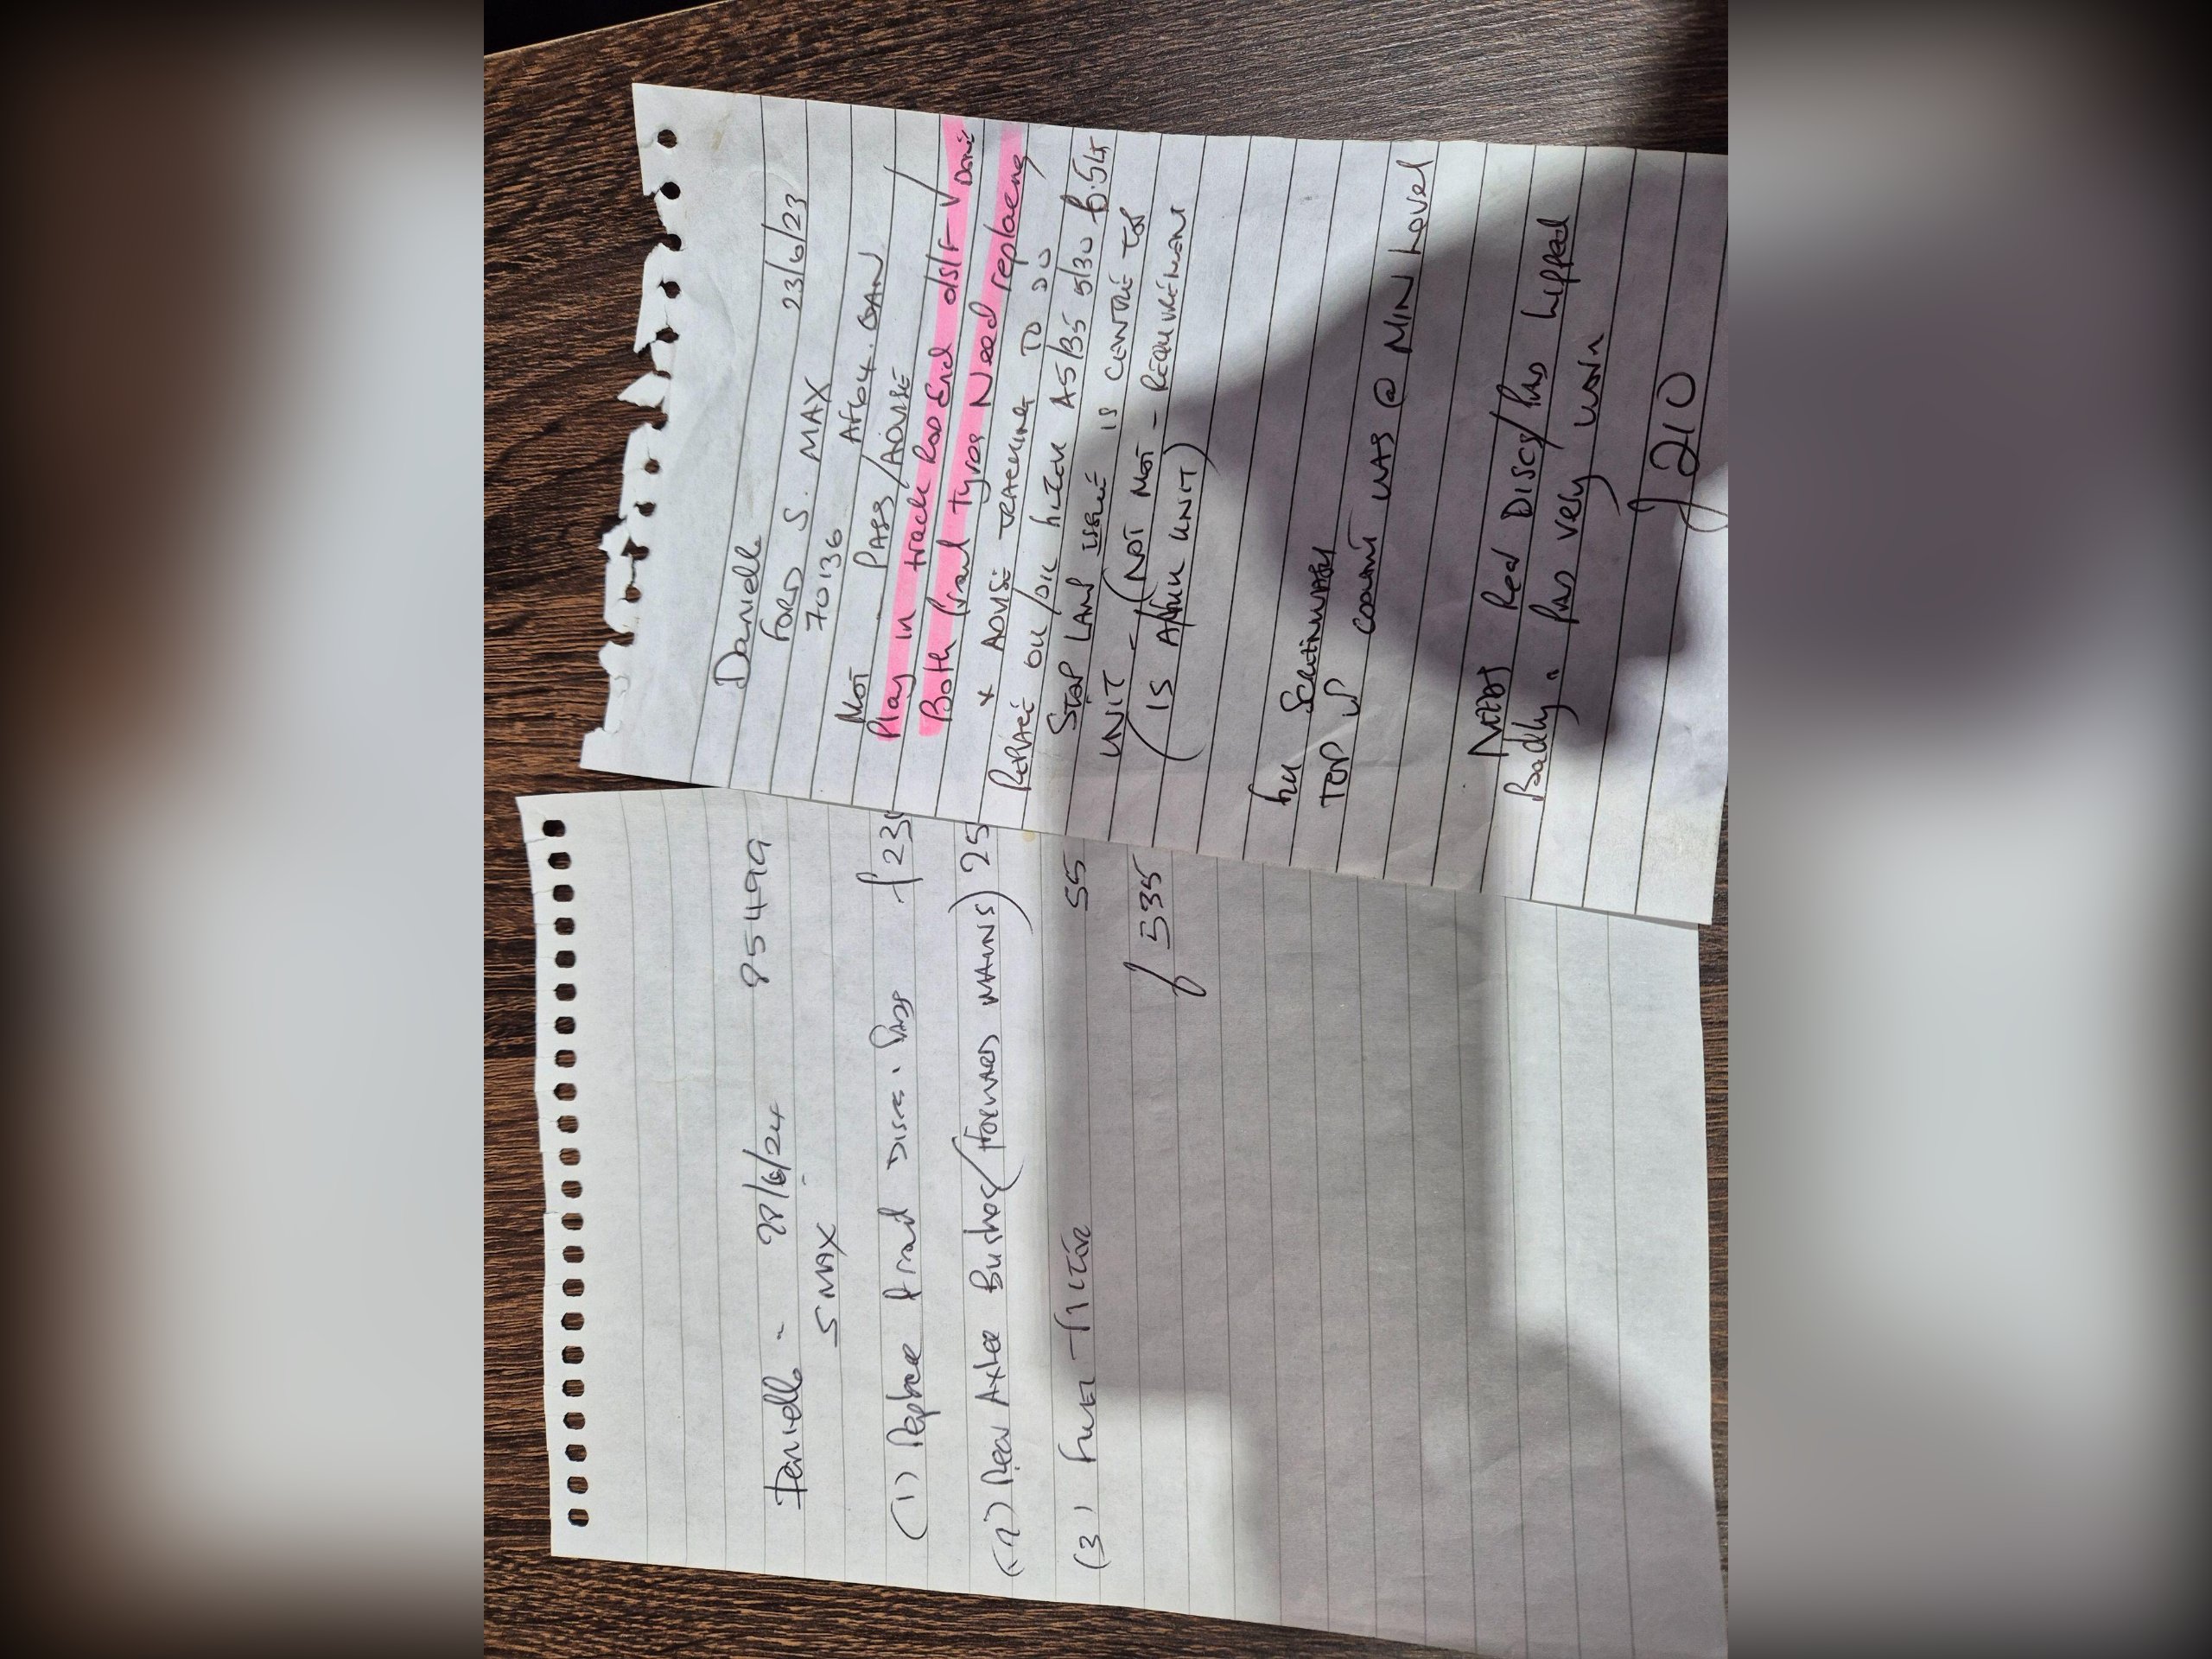 Danielle - 28/6/24 85499
S MAX
(1) Replace front Discs. Pads £23
(2) Rear Axle Bushes (FORWARD MAINS) 25
(3) FUEL FILTER 55
£535
Danielle
FORD S. MAX 23/6/23
70136 AF64.
MOT PASS/ADVISE
Play in track Rod End o/s/f ✓ DONE
Both front tyres Need replacing
* ADVISE TRACKING TO DO
REPLACE OIL/OIL FILTER A5/B5 5/30 5.5LT
STOP LAMP ISSUE IS CENTRE TOP
UNIT - (NOT MOT - REQUIREMENT
(IS A UNIT)
TOP UP COOLANT WAS @ MIN Level
NEEDS Rear DISCS/PADS Lipped
Badly. PADS very worn
£210